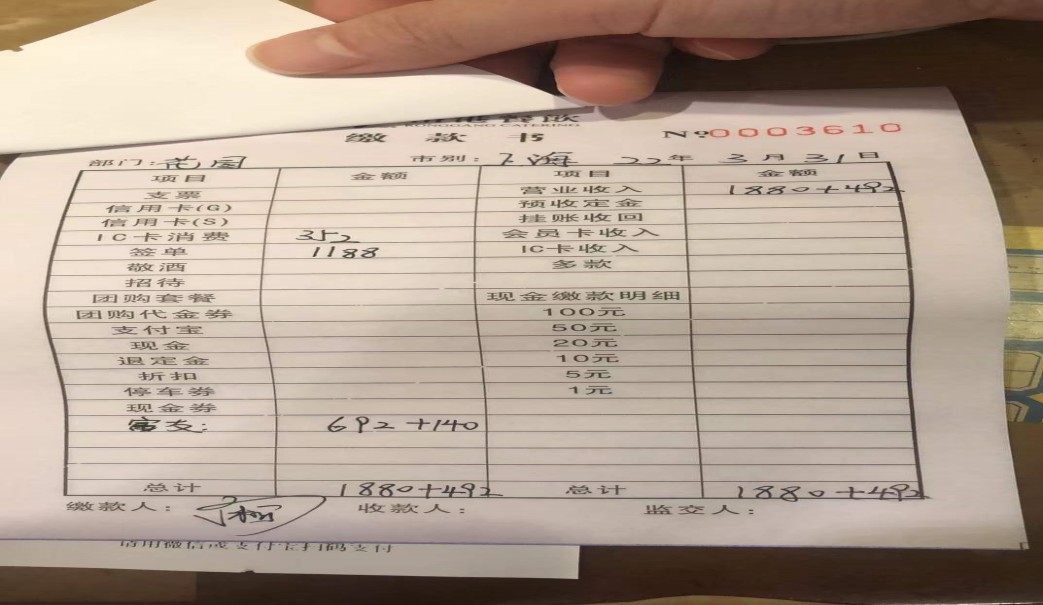 RONGGANG CATERING
缴款书 №0003610
部门：花园 市别： 22年3月31日
项目 金额 项目 金额
支票 营业收入 1880+492
信用卡(G) 预收定金
信用卡(S) 挂账收回
IC卡消费 352 会员卡收入
签单 1188 IC卡收入
敬酒 多款
招待
团购套餐 现金缴款明细
团购代金券 100元
支付宝 50元
现金 20元
退定金 10元
折扣 5元
停车券 1元
现金券
692+140
总计 1880+492 总计 1880+492
缴款人： 收款人： 监交人：